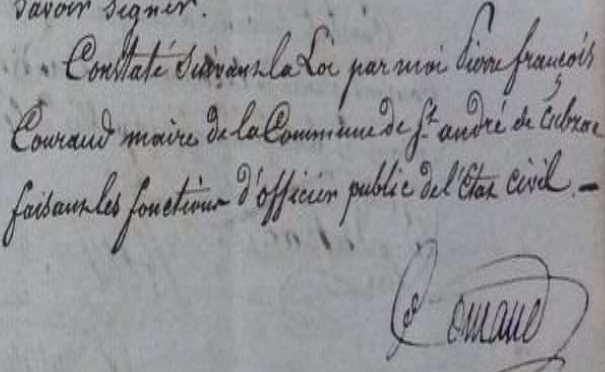 savoir signer.
Constaté suivant la Loi par moi Pierre françois
Couraud maire de la Commune de St. andré de Cubzac
faisant les fonctions d'officier public de l'Etat civil. —
Couraud